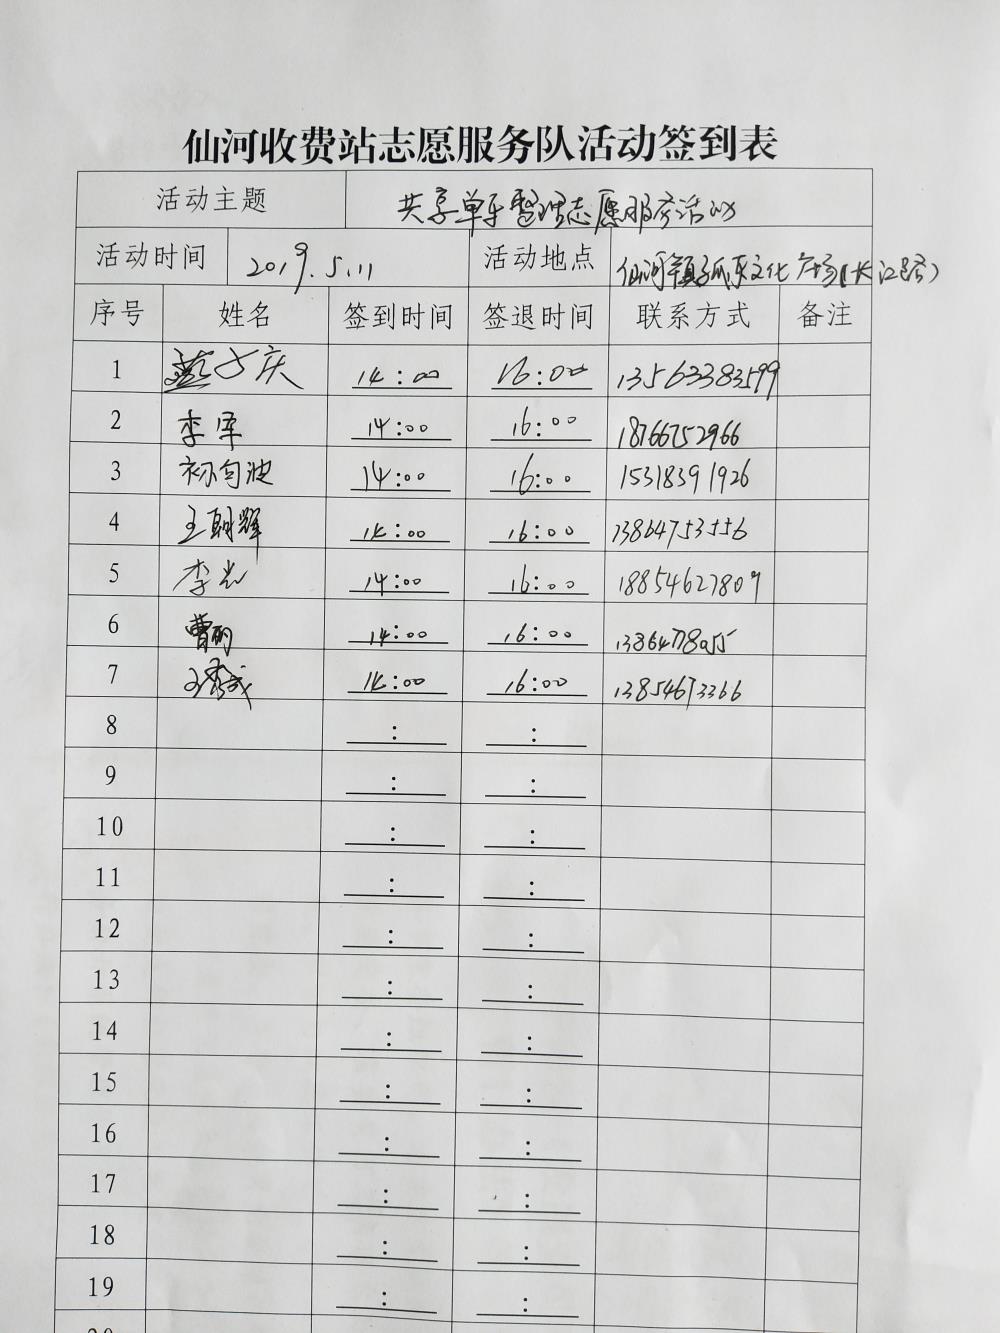 仙河收费站志愿服务队活动签到表
活动主题 共享单车整理志愿服务活动
活动时间 2019.5.11 活动地点 仙河镇孤东文化广场(长江路)
序号 姓名 签到时间 签退时间 联系方式 备注
1 14:00 16:00 13563383599
2 李军 14:00 16:00 18766752966
3 14:00 16:00 15318391926
4 王朝辉 14:00 16:00 13864753556
5 李光 14:00 16:00 18854627809
6 曹明 14:00 16:00 13864778055
7 14:00 16:00 13854673366
8 : :
9 : :
10 : :
11 : :
12 : :
13 : :
14 : :
15 : :
16 : :
17 : :
18 : :
19 : :
20